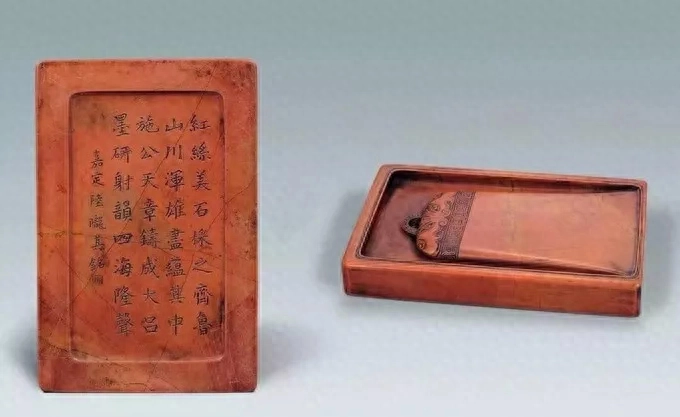 紅絲美石之齊魯
山川渾雄盡蘊中
施公天章鑄成大呂
墨研射韻四海隆聲
嘉定陸銘